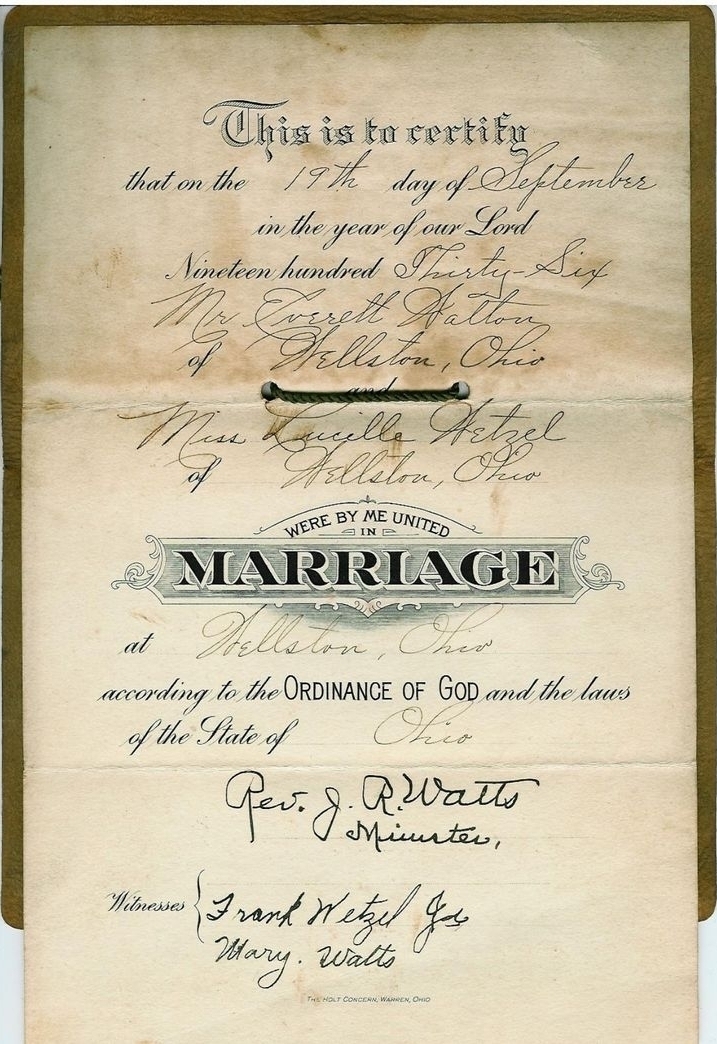 This is to certify
that on the 19th day of September
in the year of our Lord
Nineteen hundred Thirty-Six
Mr Everett Hatton
of Wellston, Ohio
and
Miss Lucille Wetzel
of Wellston, Ohio
WERE BY ME UNITED
IN
MARRIAGE
at Wellston, Ohio
according to the ORDINANCE OF GOD and the laws
of the State of Ohio
Rev. J. R. Watts
Minister,
Witnesses { Frank Wetzel
Mary. Watts
THE HOLT CONCERN, WARREN, OHIO